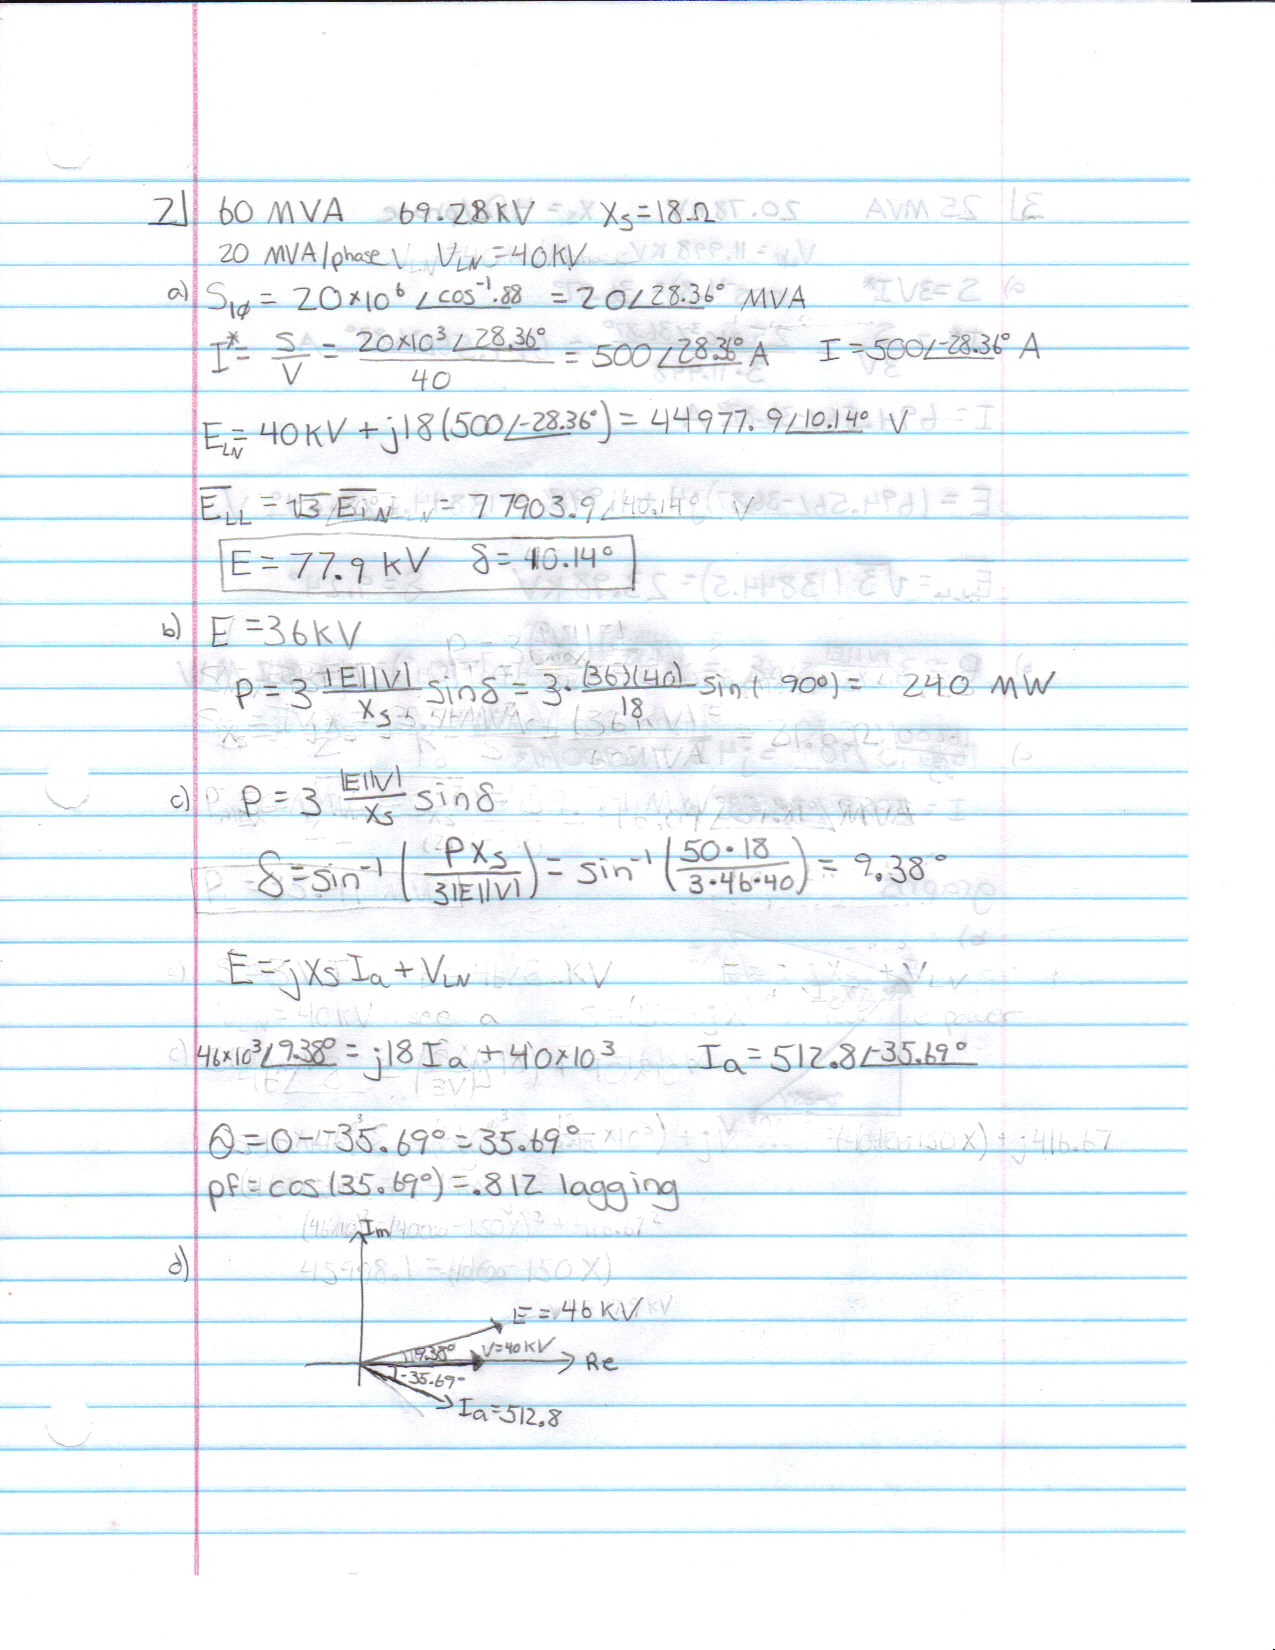 2] 60 MVA 69.28KV Xs=18Ω
20 MVA/phase VLN=40KV
a) S1φ = 20×10⁶∠cos⁻¹.88 = 20∠28.36° MVA
I*= S/V = 20×10³∠28.36°/40 = 500∠28.36° A I=500∠-28.36° A
ELN= 40KV + j18(500∠-28.36°) = 44977.9∠10.14° V
ELL = √3 ELN = 77903.9∠40.14° V
E = 77.9 KV δ=10.14°
b) E =36KV
P = 3 |E||V|/Xs sinδ = 3·(36)(40)/18 sin( 90°) = 240 MW
c) P = 3 |E||V|/Xs sinδ
δ=sin⁻¹(PXs/3|E||V|) = sin⁻¹(50·18/3·46·40) = 9.38°
E=jXsIa+VLN
46×10³∠9.38° = j18Ia+40×10³ Ia=512.8∠-35.69°
θ=0--35.69°=35.69°
pf=cos(35.69°)=.812 lagging
Im
d)
E=46KV
9.38° V=40KV Re
-35.69°
Ia=512.8